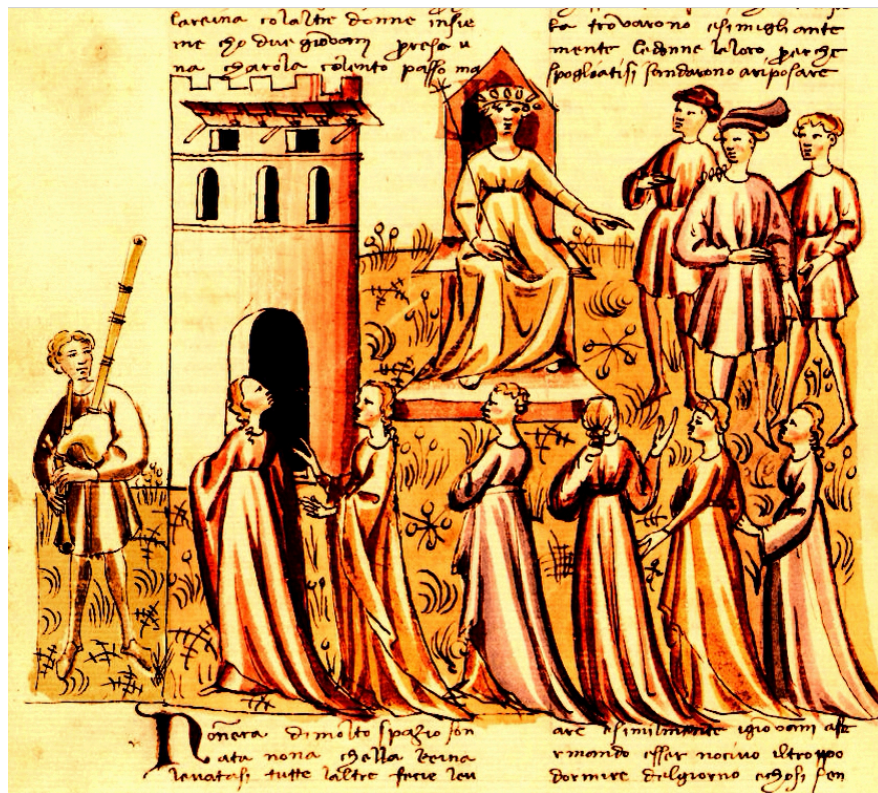 lareina colaltre donne insie
me cho due giovani presa u
na charola colento passo ma
ta trovarono esimigli ante
mente ledonne laloro perche
spogliatisi sandarono ariposare
Noñera dimolto spazio son
ata nona chella Reina
levatasi tutte laltre fecie leu
are esimilmente igiovani affe
rmando esser nocivo iltroppo
dormire delgiorno echosi sen